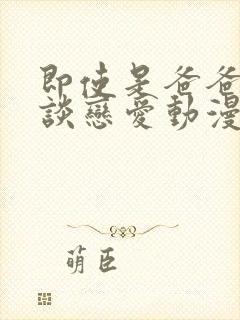 即使是爸爸
談戀愛動漫
萌臣